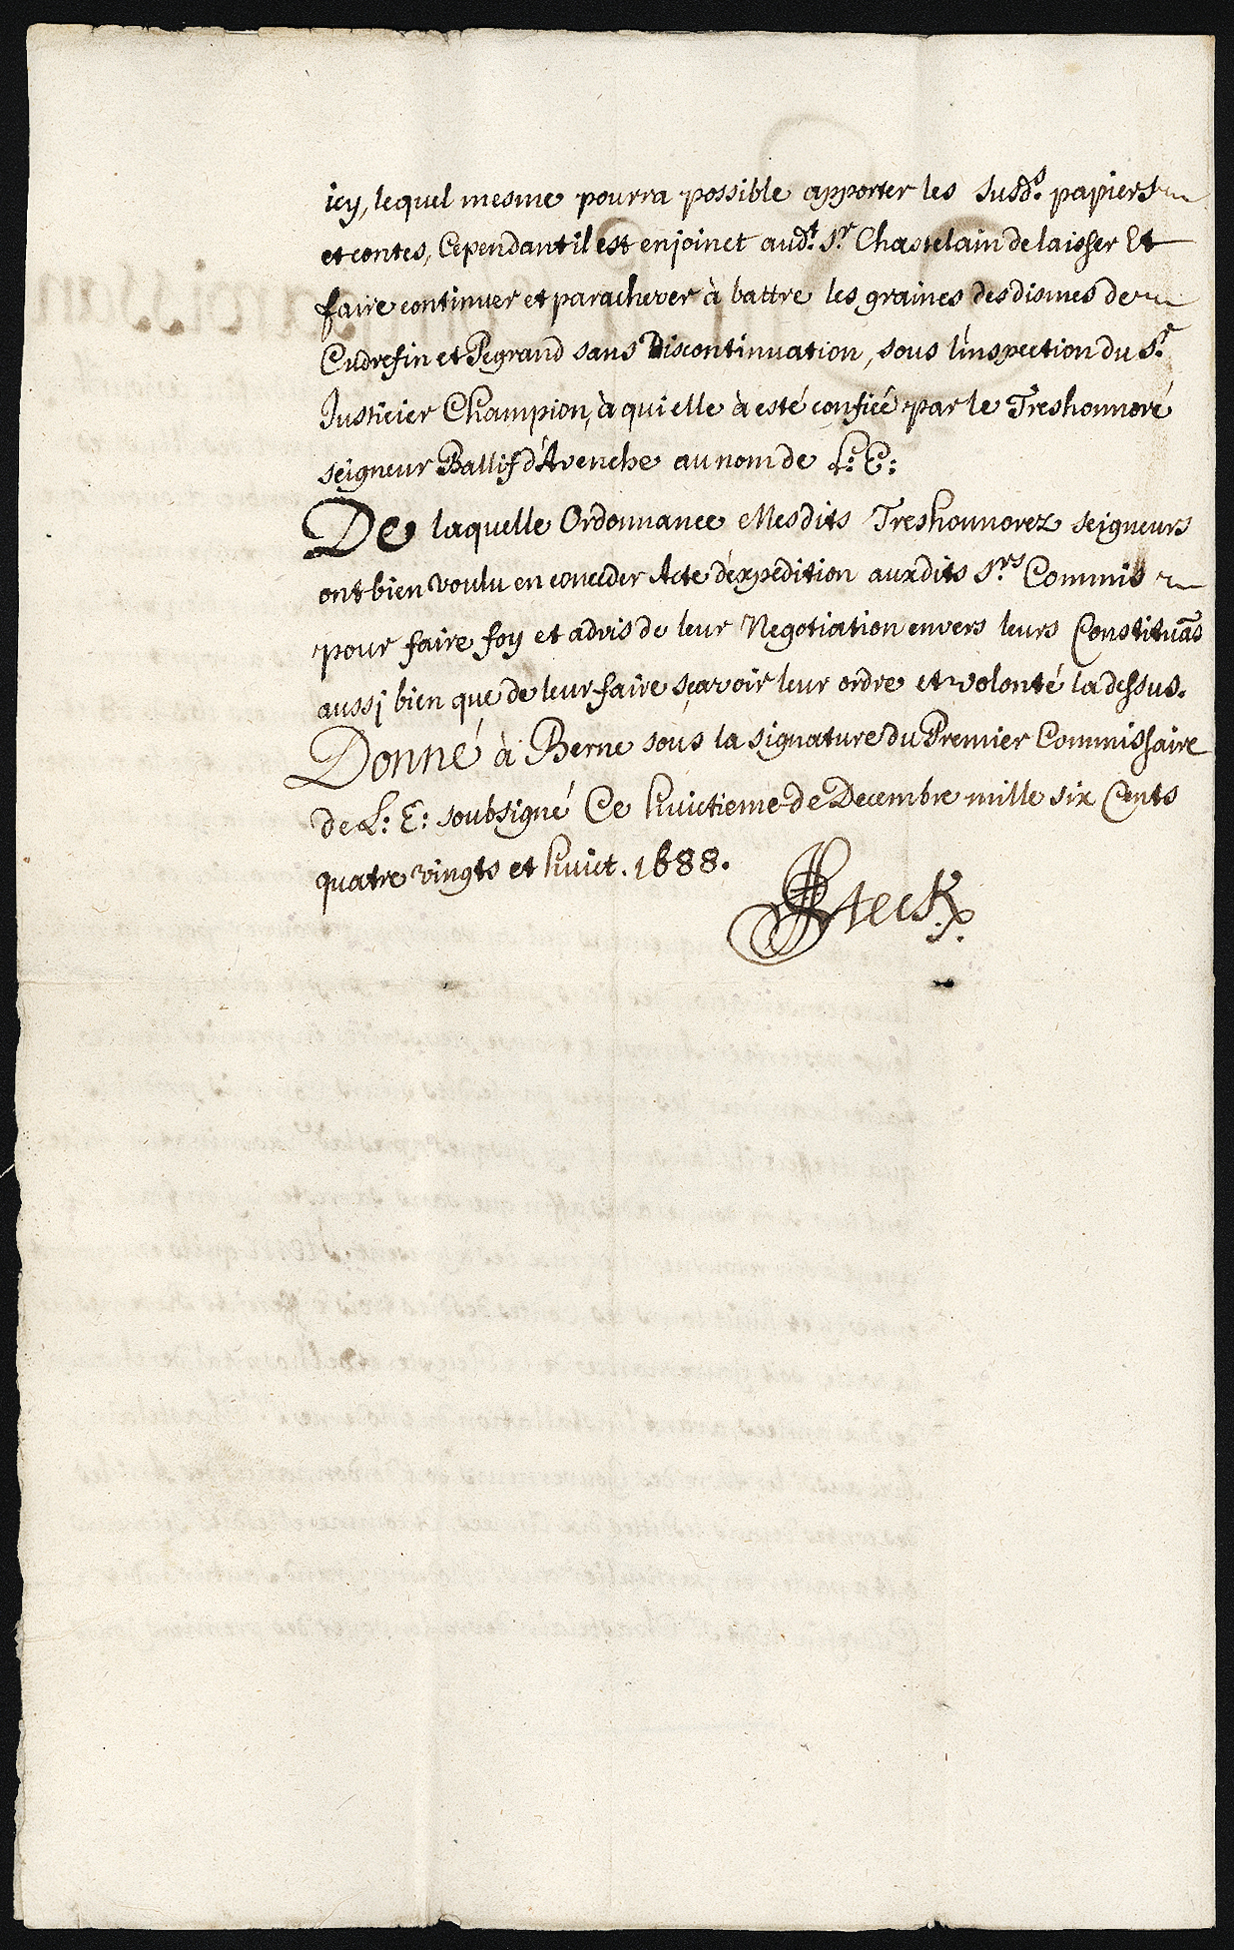 icy, lequel mesme pourra possible apporter les susd.s papiers
et contes, Cependant il est enjoinct aud.t S.r Chastelain de laisser Et
faire continuer et parachever à battre les graines des dismes de
Cudrefin et Pegrand sans Discontinuation, sous l'inspection du S.r
Justicier Champion, à qui elle à esté confiée par le Treshonnoré
seigneur Ballif d'Avenche au nom de L: E:
De laquelle Ordonnance Mesdits Treshonnorez seigneurs
ont bien voulu en conceder Acte d'expedition auxdits S.rs Commis
pour faire foy et advis de leur Negotiation envers leurs Constituãs
aussj bien que de leur faire sçavoir leur ordre et volonté la dessus.
Donné à Berne sous la signature du Premier Commissaire
de L: E: soubsigné Ce huictieme de Decembre mille six Cents
quatre vingts et huict. 1688.
Steck